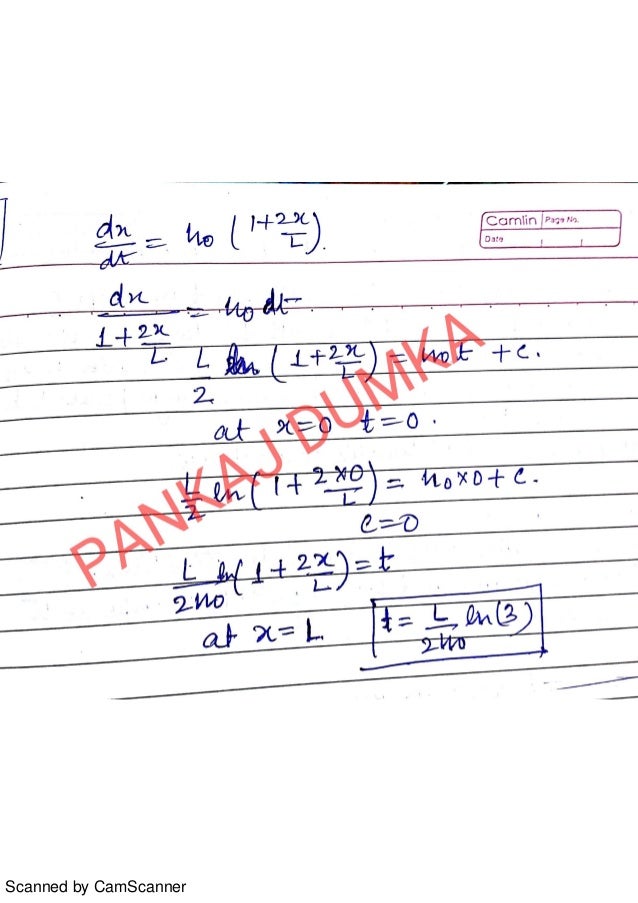 Camlin Page No.
Date
dx/dt = u₀ (1+2x/L).
dx/(1+2x/L) = u₀ dt
L/2 ln (1+2x/L) = u₀t + c.
at x=0 t=0.
L/2 ln (1+2×0/L) = u₀×0+c.
c=0
L/2u₀ ln(1+2x/L)=t
at x=L t= L/2u₀ ln(3)
PANKAJ DUMKA
Scanned by CamScanner